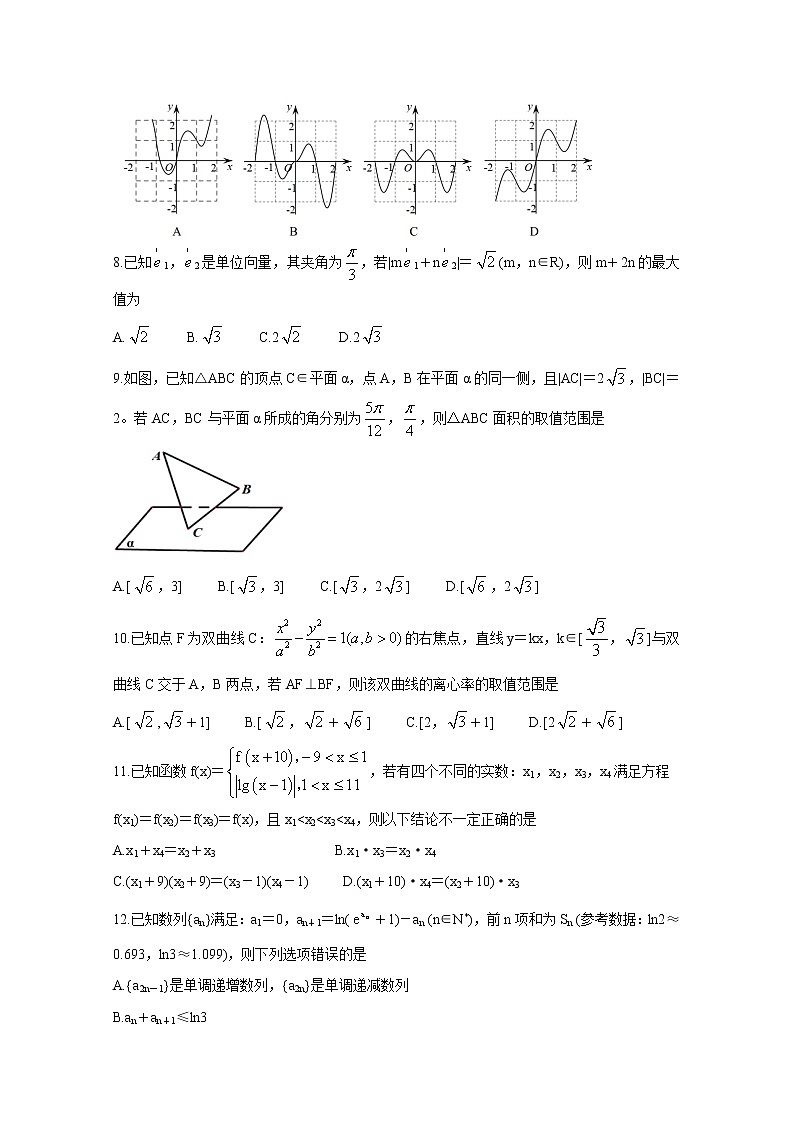 y y y y
2 2 2 2
1 1 1 1
-2 -1 O 1 2 x -2 -1 O 1 2 x -2 -1 O 1 2 x -2 -1 O 1 2 x
-1 -1 -1 -1
-2 -2 -2 -2
A B C D
8.已知e1，e2是单位向量，其夹角为π/3，若|me1+ne2|=√2(m，n∈R)，则m+2n的最大
值为
A.√2 B.√3 C.2√2 D.2√3
9.如图，已知△ABC的顶点C∈平面α，点A，B在平面α的同一侧，且|AC|=2√3，|BC|=
2。若AC，BC与平面α所成的角分别为5π/12，π/4，则△ABC面积的取值范围是
A
B
C
α
A.[√6，3] B.[√3，3] C.[√3，2√3] D.[√6，2√3]
10.已知点F为双曲线C：x²/a²-y²/b²=1(a,b>0)的右焦点，直线y=kx，k∈[√3/3，√3]与双
曲线C交于A，B两点，若AF⊥BF，则该双曲线的离心率的取值范围是
A.[√2,√3+1] B.[√2，√2+√6] C.[2，√3+1] D.[2√2+√6]
11.已知函数f(x)={f(x+10),-9<x≤1 |lg(x-1)|,1<x≤11，若有四个不同的实数：x₁，x₂，x₃，x₄满足方程
f(x₁)=f(x₂)=f(x₃)=f(x)，且x₁<x₂<x₃<x₄，则以下结论不一定正确的是
A.x₁+x₄=x₂+x₃ B.x₁·x₃=x₂·x₄
C.(x₁+9)(x₂+9)=(x₃-1)(x₄-1) D.(x₁+10)·x₄=(x₂+10)·x₃
12.已知数列{aₙ}满足：a₁=0，aₙ₊₁=ln(e^aₙ+1)-aₙ(n∈N*)，前n项和为Sₙ(参考数据：ln2≈
0.693，ln3≈1.099)，则下列选项错误的是
A.{a₂ₙ₋₁}是单调递增数列，{a₂ₙ}是单调递减数列
B.aₙ+aₙ₊₁≤ln3